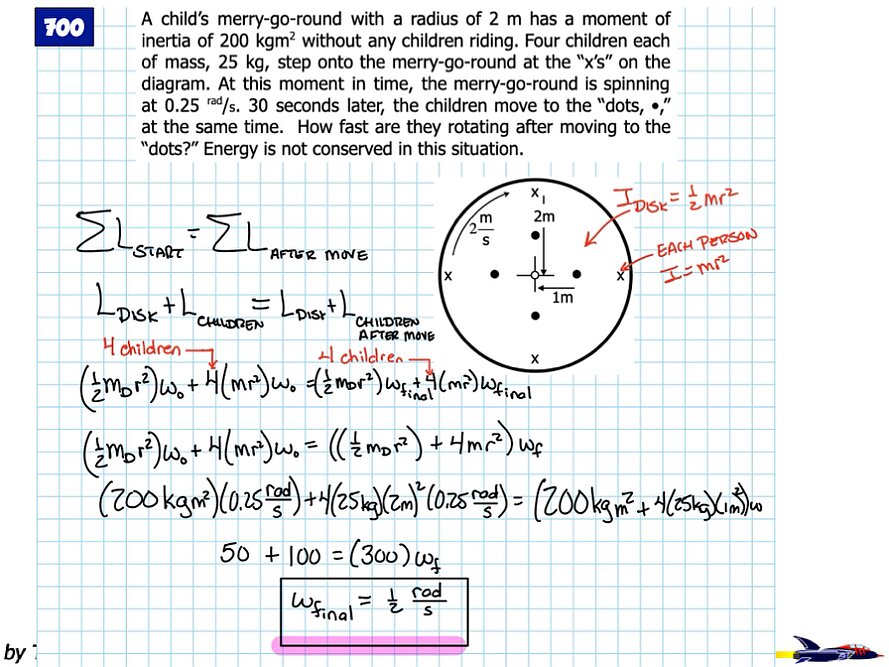 700
A child's merry-go-round with a radius of 2 m has a moment of
inertia of 200 kgm² without any children riding. Four children each
of mass, 25 kg, step onto the merry-go-round at the "x's" on the
diagram. At this moment in time, the merry-go-round is spinning
at 0.25 rad/s. 30 seconds later, the children move to the "dots, •,"
at the same time. How fast are they rotating after moving to the
"dots?" Energy is not conserved in this situation.
x
2m
2 m/s
x
x
1m
x
I DISK = 1/2 mr²
EACH PERSON
I = mr²
∑L START = ∑L AFTER MOVE
L DISK + L CHILDREN = L DISK + L CHILDREN AFTER MOVE
4 children 4 children
(1/2 m_D r²)ω₀ + 4(mr²)ω₀ = (1/2 m_D r²)ω_final + 4(mr²)ω_final
(1/2 m_D r²)ω₀ + 4(mr²)ω₀ = ((1/2 m_D r²) + 4mr²)ω_f
(200 kgm²)(0.25 rad/s) + 4(25kg)(2m)²(0.25 rad/s) = (200 kgm² + 4(25kg)(1m)²)ω
50 + 100 = (300)ω_f
ω_final = 1/2 rad/s
by